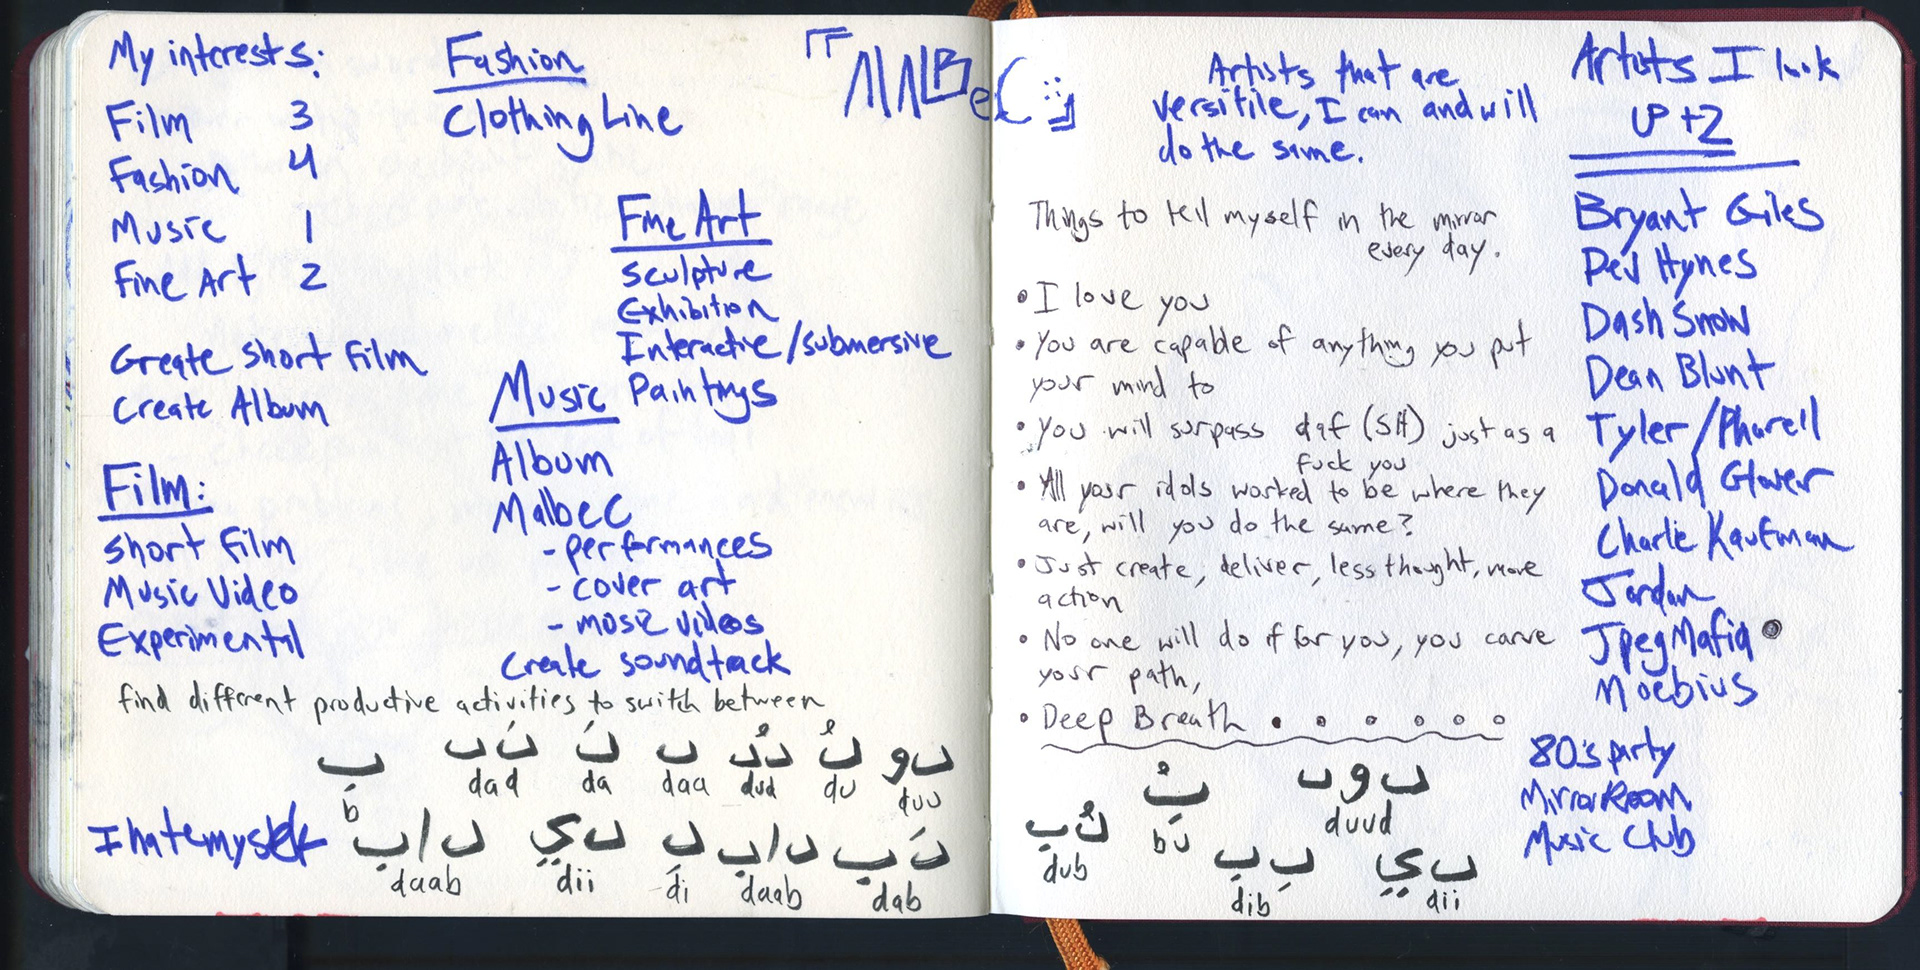 My interests:
Film 3
Fashion 4
Music 1
Fine Art 2
Create short film
Create Album
Film:
short film
Music Video
Experimental
Fashion
Clothing Line
Fine Art
sculpture
Exhibition
Interactive/submersive
Paintings
Music
Album
Malbec
- performances
- cover art
- videos
Create soundtrack
find different productive activities to switch between
بِ دَد دَ د دُد دُ دو
b dad da daa dud du duu
I hate myself
داب دي دِ داب دَب
daab dii di daab dab
MALBeC
Artists that are
versitile, I can and will
do the same.
Things to tell myself in the mirror
every day.
• I love you
• You are capable of anything you put
your mind to
• You will surpass daf (SH) just as a
fuck you
• All your idols worked to be where they
are, will you do the same?
• Just create, deliver, less thought, more
action
• No one will do it for you, you carve
your path,
• Deep Breath
دُب بُ دود
dub bu duud
دِب دي
dib dii
Artists I look
up +2
Bryant Giles
Dev Hynes
Dash Snow
Dean Blunt
Tyler/Pharell
Donald Glover
Charlie Kaufman
Jordan
JpegMafia
Moebius
80's party
Mirror Room
Music Club